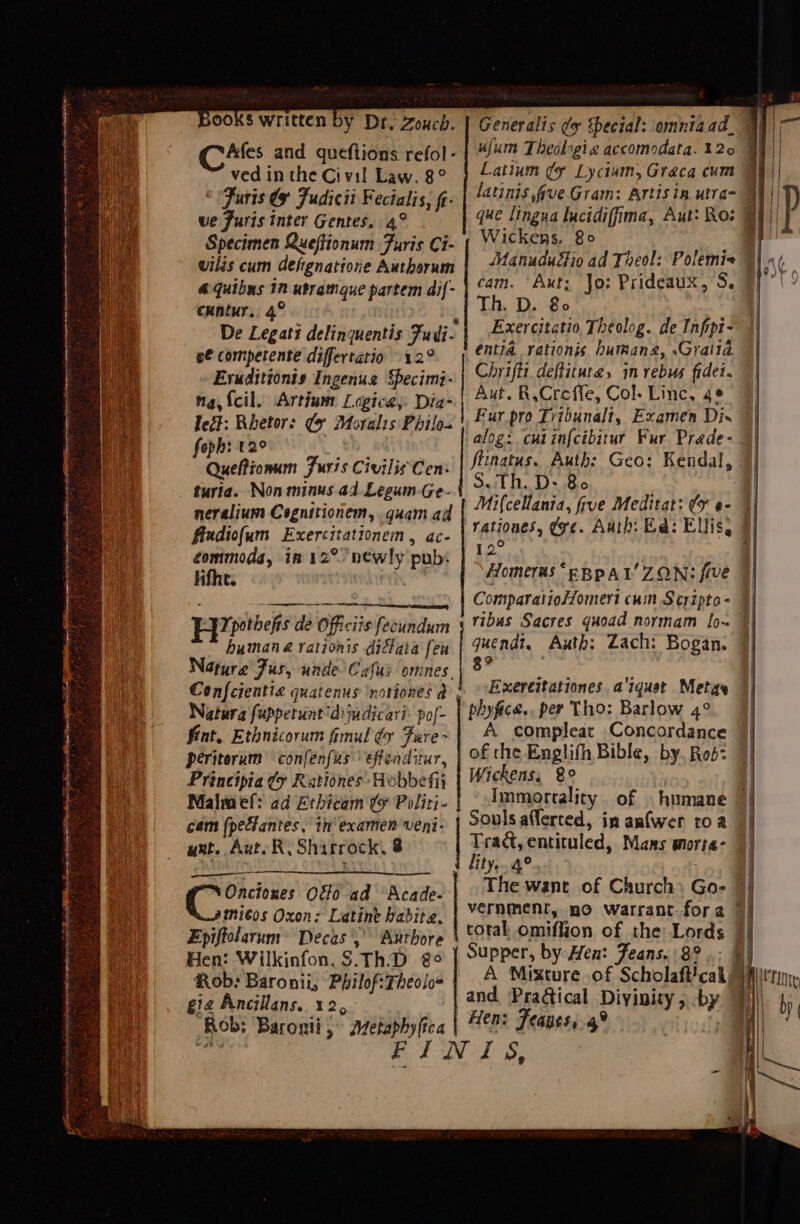 Books written by Dr. Zouch.
CAſes and queſtions reſol-
ved in the Civil Law. 8°
Juris & Judicii Fecialis, ſi-
ve Juris inter Gentes. 4°
Specimen Queſtionum Juris Ci-
vilis cum deſignatione Authorum
& quibus in utramque partem diſ-
cuntur. 4°
De Legati delinquentis Judi-
ce competente diſſertatio 12°
Eruditionis Ingenuæ Specimi-
na, ſcil. Artium Logicæ, Dia-
lect: Rhetor: & Moralis Philo-
ſoph: 12°
Queſtionum Juris Civilis Cen-
turia. Non minus ad Legum Ge-
neralium Cognitionem, quam ad
ſtudioſum Exercitationem, ac-
commoda, in 12° newly pub-
liſht.
HYpotheſis de Officiis ſecundum
humanæ rationis dictata ſeu
Naturæ Jus, unde Caſus omnes
Conſcientiæ quatenus notiones à
Natura ſuppetunt dijudicari poſ-
ſint, Ethnicorum ſimul & Jure-
peritorum conſenſus oſtenditur,
Principia & Rationes Hobbeſii
Malmeſ: ad Ethicam & Politi-
cam ſpectantes, in examen veni-
unt. Aut. R. Sharrock. 8
Onciones Octo ad Acade-
micos Oxon: Latinè habitæ.
Epiſtolarum Decas, Authore
Hen: Wilkinſon. S.Th:D 8°
Rob: Baronii, Philoſ:Theolo-
giæ Ancillans. 12°
Rob: Baronii, Metaphyſica
Generalis & ſpecial: omnia ad
uſum Theologiæ accomodata. 12°
Latium & Lycium, Græca cum
latinis, ſive Gram: Artis in utra-
que lingua lucidiſſima, Aut: Ro:
Wickens. 8°
Manuductio ad Theol: Polemi-
cam. Aut: Jo: Prideaux, S.
Th. D. 8°
Exercitatio Theolog. de Inſipi-
entiâ rationis humanæ, Gratiâ
Chriſti deſtitutæ, in rebus fidei.
Aut. R. Croſſe, Col. Linc. 4°
Fur pro Tribunali, Examen Di-
alog: cui inſcibitur Fur Prede-
ſtinatus. Auth: Geo: Kendal,
S. Th. D. 8°
Miſcellania, ſive Meditat: & o-
rationes, &c. Auth: Ed: Ellis,
12°
Homerus ἙΒΡΑΙ'ΖΩΝ: ſive
Comparatio Homeri cum Scripto-
ribus Sacres quoad normam lo-
quendi. Auth: Zach: Bogan.
8°
Exercitationes aliquot Metæ
phyſicæ. per Tho: Barlow 4°
A compleat Concordance
of the Engliſh Bible, by Rob:
Wickens. 8°
Immortality of humane
Souls aſſerted, in anſwer to a
Tract, entituled, Mans morta-
lity. 4°
The want of Church Go-
vernment, no warrant for a
total omiſſion of the Lords
Supper, by Hen: Jeans. 8°
A Mixture of Scholaſtical
and Practical Divinity, by
Hen: Jeanes, 4°
FINIS,